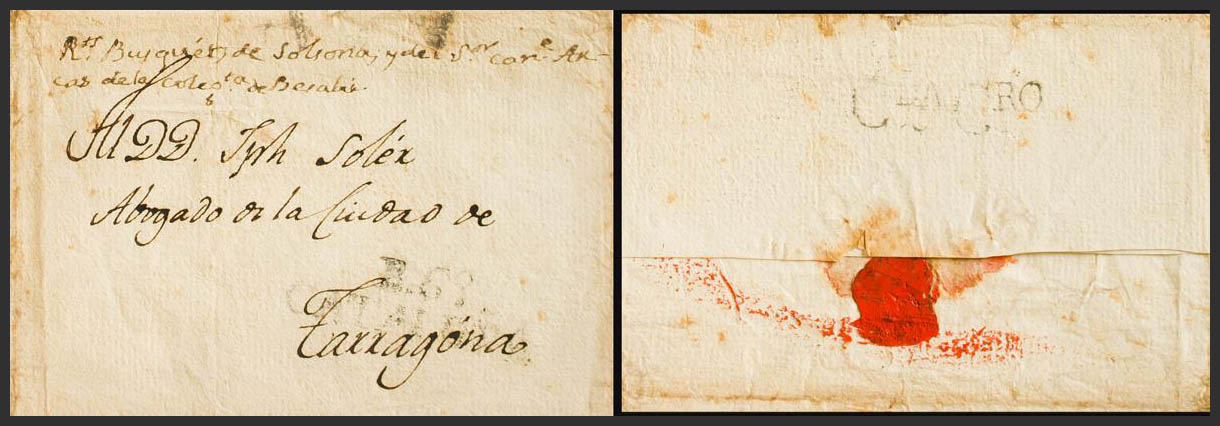 Rtt Busquéts de Solsona, y del Sor. cane. An-
cas de la Colegta. de Besalú.
Al DD. Jph Solér
Abogado de la Ciudad de
Tarragóna